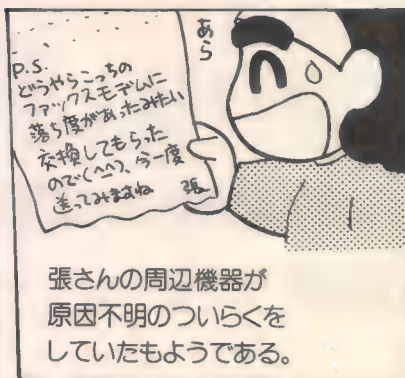 あら
P.S.
どうやらこっちの
ファックスモデムに
落ち度があったみたい
交換してもらった
ので(^^)、今一度
送ってみますね
張
張さんの周辺機器が
原因不明のついらくを
していたもようである。